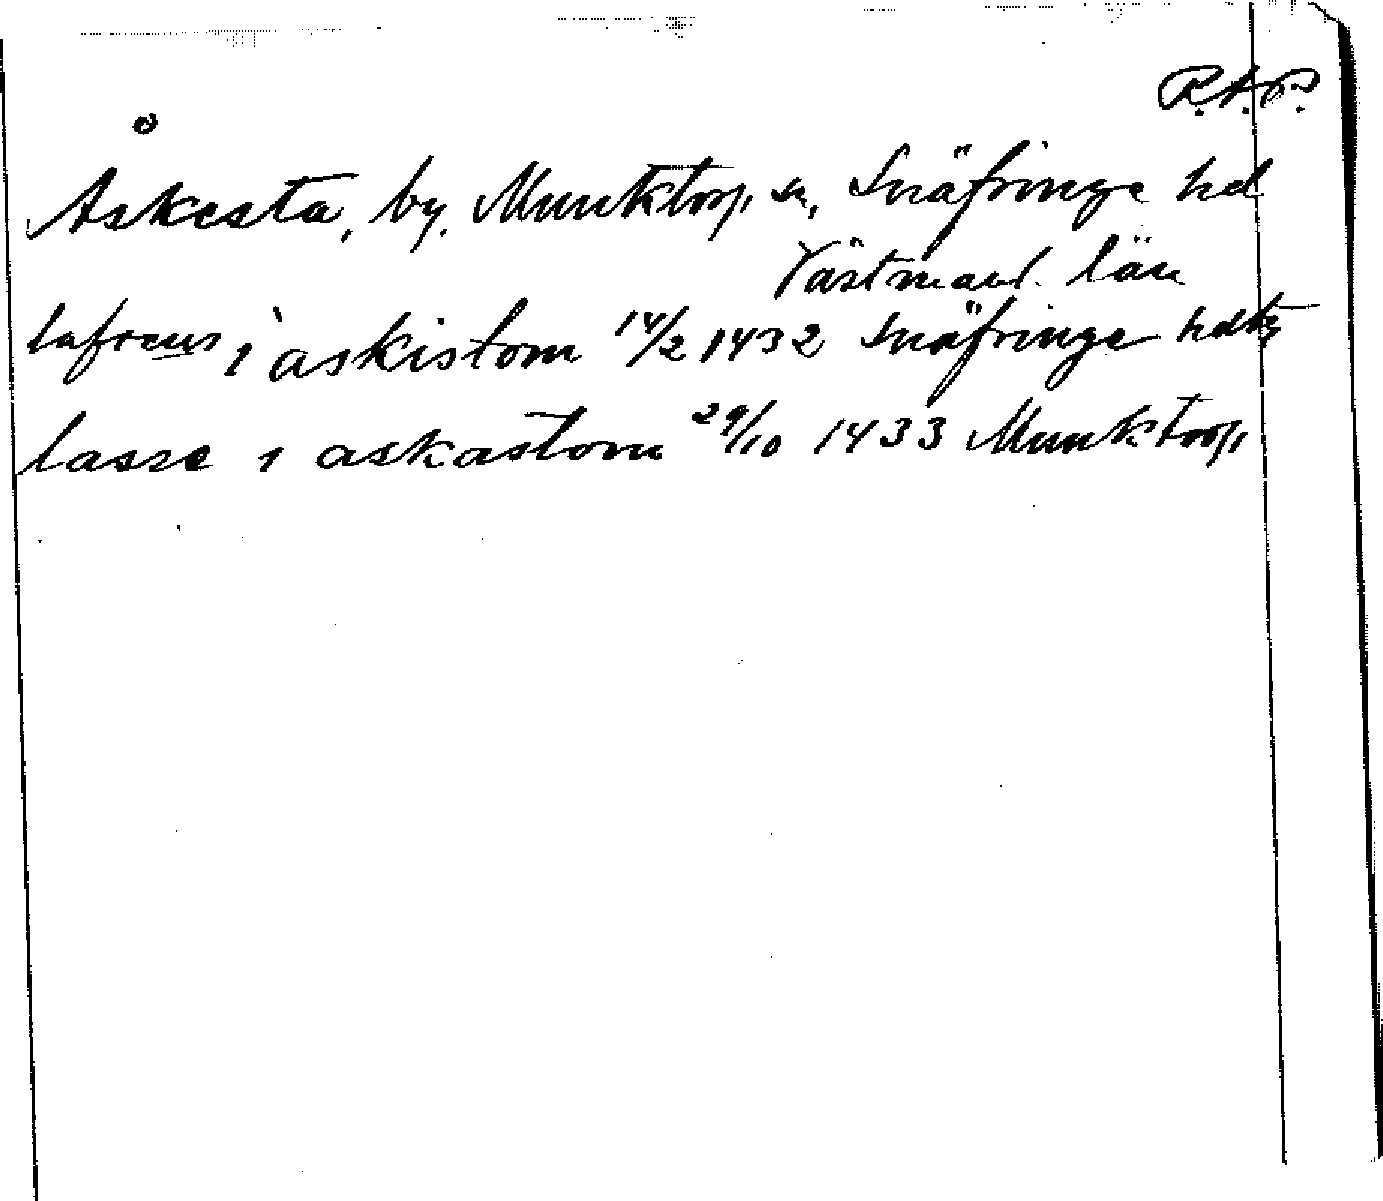 R.A.P.
Åskesta, by, Munktorp sn, Snäfringe hd
Västmanl. län
lafrens i askistom 14/2 1432 Snäfringe hdtg
lasse i askastom 29/10 1433 Munktorp